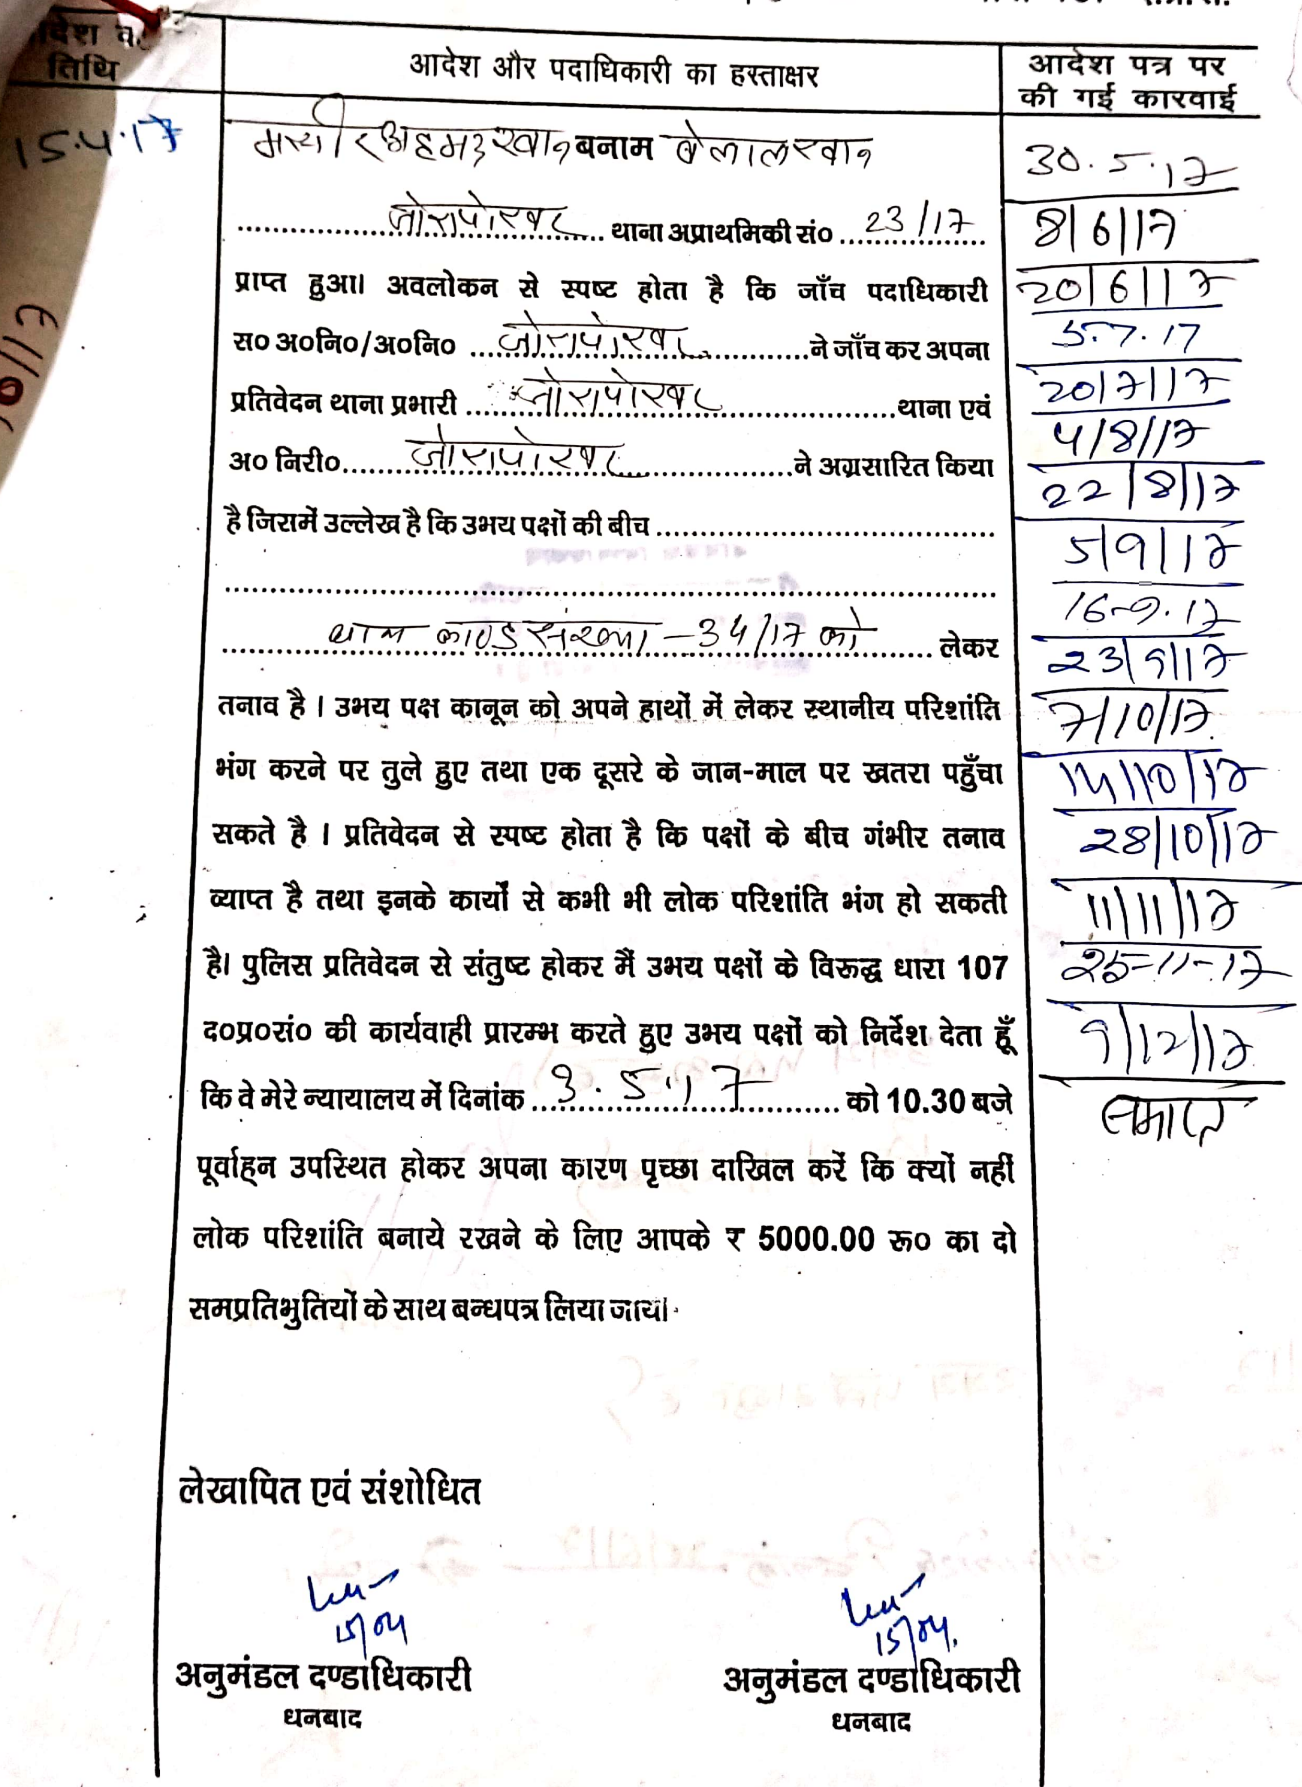 तिथि
आदेश और पदाधिकारी का हस्ताक्षर
आदेश पत्र पर
की गई कारवाई
15.4.17
अहमद खान बनाम बेलाल खान
जोरापोखर थाना अप्राथमिकी सं० 23/17
प्राप्त हुआ। अवलोकन से स्पष्ट होता है कि जाँच पदाधिकारी
स० अ०नि०/अ०नि० जोरापोखर ने जाँच कर अपना
प्रतिवेदन थाना प्रभारी जोरापोखर थाना एवं
अ० निरी० जोरापोखर ने अग्रसारित किया
है जिसमें उल्लेख है कि उभय पक्षों की बीच
थाना काण्ड संख्या - 34/17 को लेकर
तनाव है । उभय पक्ष कानून को अपने हाथों में लेकर स्थानीय परिशांति
भंग करने पर तुले हुए तथा एक दूसरे के जान-माल पर खतरा पहुँचा
सकते है । प्रतिवेदन से स्पष्ट होता है कि पक्षों के बीच गंभीर तनाव
व्याप्त है तथा इनके कार्यों से कभी भी लोक परिशांति भंग हो सकती
है। पुलिस प्रतिवेदन से संतुष्ट होकर मैं उभय पक्षों के विरूद्ध धारा 107
द०प्र०सं० की कार्यवाही प्रारम्भ करते हुए उभय पक्षों को निर्देश देता हूँ
कि वे मेरे न्यायालय में दिनांक 3.5.17 को 10.30 बजे
पूर्वाह्न उपस्थित होकर अपना कारण पृच्छा दाखिल करें कि क्यों नहीं
लोक परिशांति बनाये रखने के लिए आपके ₹ 5000.00 रू० का दो
समप्रतिभुतियों के साथ बन्धपत्र लिया जाय।
30.5.17
8/6/17
20/6/17
5.7.17
20/7/17
4/8/17
22/8/17
5/9/17
16-9-17
23/9/17
7/10/17
14/10/17
28/10/17
11/11/17
25-11-17
9/12/17
समाप्त
लेखापित एवं संशोधित
15/04
15/04.
अनुमंडल दण्डाधिकारी
धनबाद
अनुमंडल दण्डाधिकारी
धनबाद